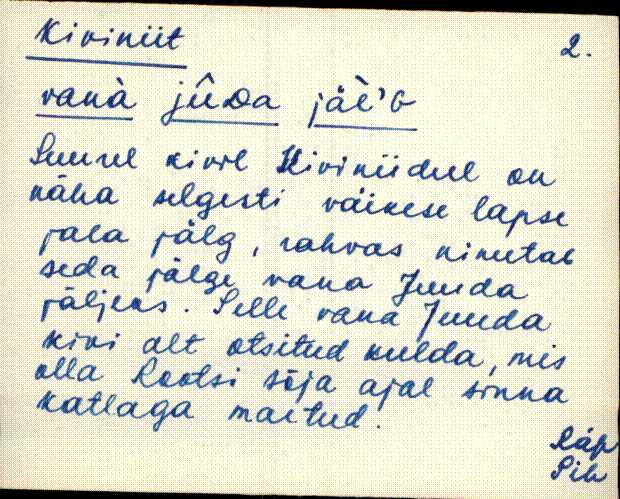 Kiviniit
2.
vanà jûDa jäl̀'G
Suurel kivil Kiviniidul on
näha selgesti väikese lapse
jala jälg, rahvas nimetab
seda jälge vana Juuda
jäljeks. Selle vana Juuda
kivi alt otsitud kulda, mis
olla Rootsi sõja ajal sinna
katlaga maetud.
Räp
Sik